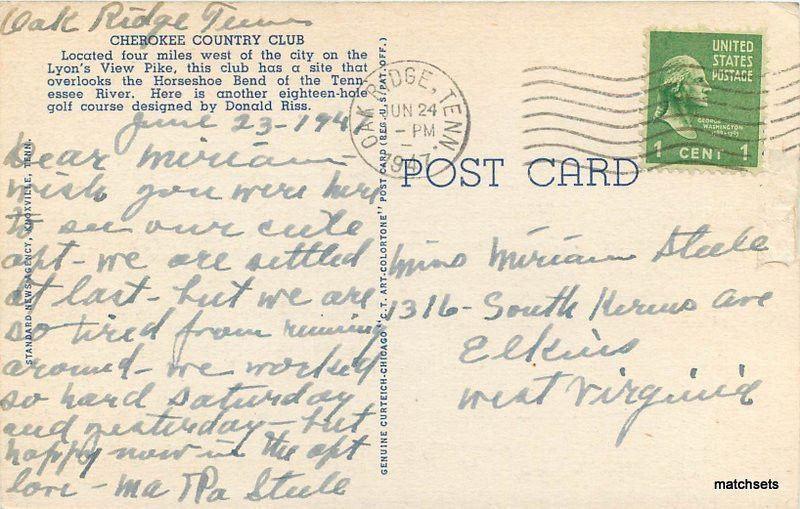 Oak Ridge Tenn
CHEROKEE COUNTRY CLUB
Located four miles west of the city on the
Lyon's View Pike, this club has a site that
overlooks the Horseshoe Bend of the Tenn-
essee River. Here is another eighteen-hole
golf course designed by Donald Riss.
June 23-194
Dear Miriam-
wish you were here
to see our cute
apt- we are settled
at last- but we are
so tired from running
around- we worked
so hard Saturday
and yesterday- but
happy now in the apt
love- Ma & Pa Steele
STANDARD NEWS AGENCY, KNOXVILLE, TENN.
GENUINE CURTEICH-CHICAGO "C.T. ART-COLORTONE" POST CARD (REG. U.S. PAT. OFF.)
OAK RIDGE, TENN
JUN 24
-PM
1947
UNITED
STATES
POSTAGE
GEORGE
WASHINGTON
1789-1797
1 CENT 1
POST CARD
Miss Miriam Steele
1316- South Kerens Ave
Elkins
West Virginia
matchsets